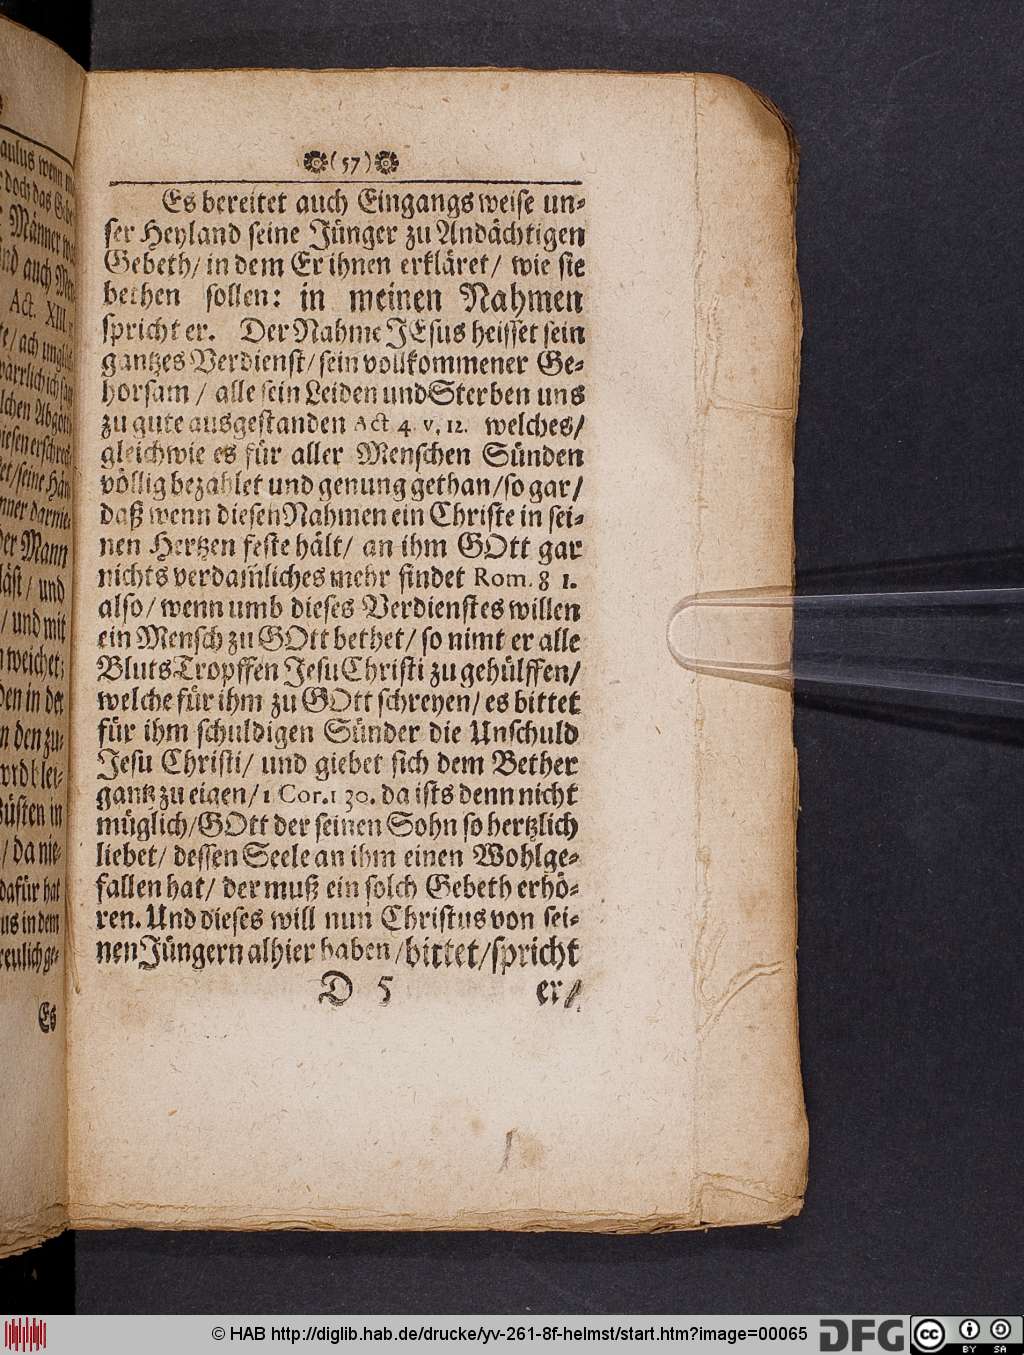 aulus wenn
doch das Gebe
Männer
und auch
Act. XIII.
te / ach
lichen Abgött
iesen
et / seine Hän
nner darnie-
der Mann
läst / und
/ und mit
n weichet;
den in der
n den zu-
wrd blei-
Büsten in
/ da nie-
dafür hat
us in dem
reulich ge-
Es
(57)
Es bereitet auch Eingangs weise un-
ser Heyland seine Jünger zu Andächtigen
Gebeth / in dem Er ihnen erkläret / wie sie
bethen sollen: in meinen Nahmen
spricht er. Der Nahme JEsus heisset sein
gantzes Verdienst / sein vollkommener Ge-
horsam / alle sein Leiden und Sterben uns
zu gute ausgestanden Act 4 v. 12. welches /
gleichwie es für aller Menschen Sünden
völlig bezahlet und genung gethan / so gar /
daß wenn diesen Nahmen ein Christe in sei-
nen Hertzen feste hält / an ihm GOtt gar
nichts verdam̅liches mehr findet Rom. 8 1.
also / wenn umb dieses Verdienstes willen
ein Mensch zu GOtt bethet / so nimt er alle
Bluts-Tropffen Jesu Christi zu gehülffen /
welche für ihm zu GOtt schreyen / es bittet
für ihm schuldigen Sünder die Unschuld
Jesu Christi / und giebet sich dem Bether
gantz zu eigen / 1 Cor. 1 30. da ists denn nicht
müglich / GOtt der seinen Sohn so hertzlich
liebet / dessen Seele an ihm einen Wohlge-
fallen hat / der muß ein solch Gebeth erhö-
ren. Und dieses will nun Christus von sei-
nen Jüngern alhier haben / bittet / spricht
D 5 er /
© HAB http://diglib.hab.de/drucke/yv-261-8f-helmst/start.htm?image=00065
DFG
cc BY SA